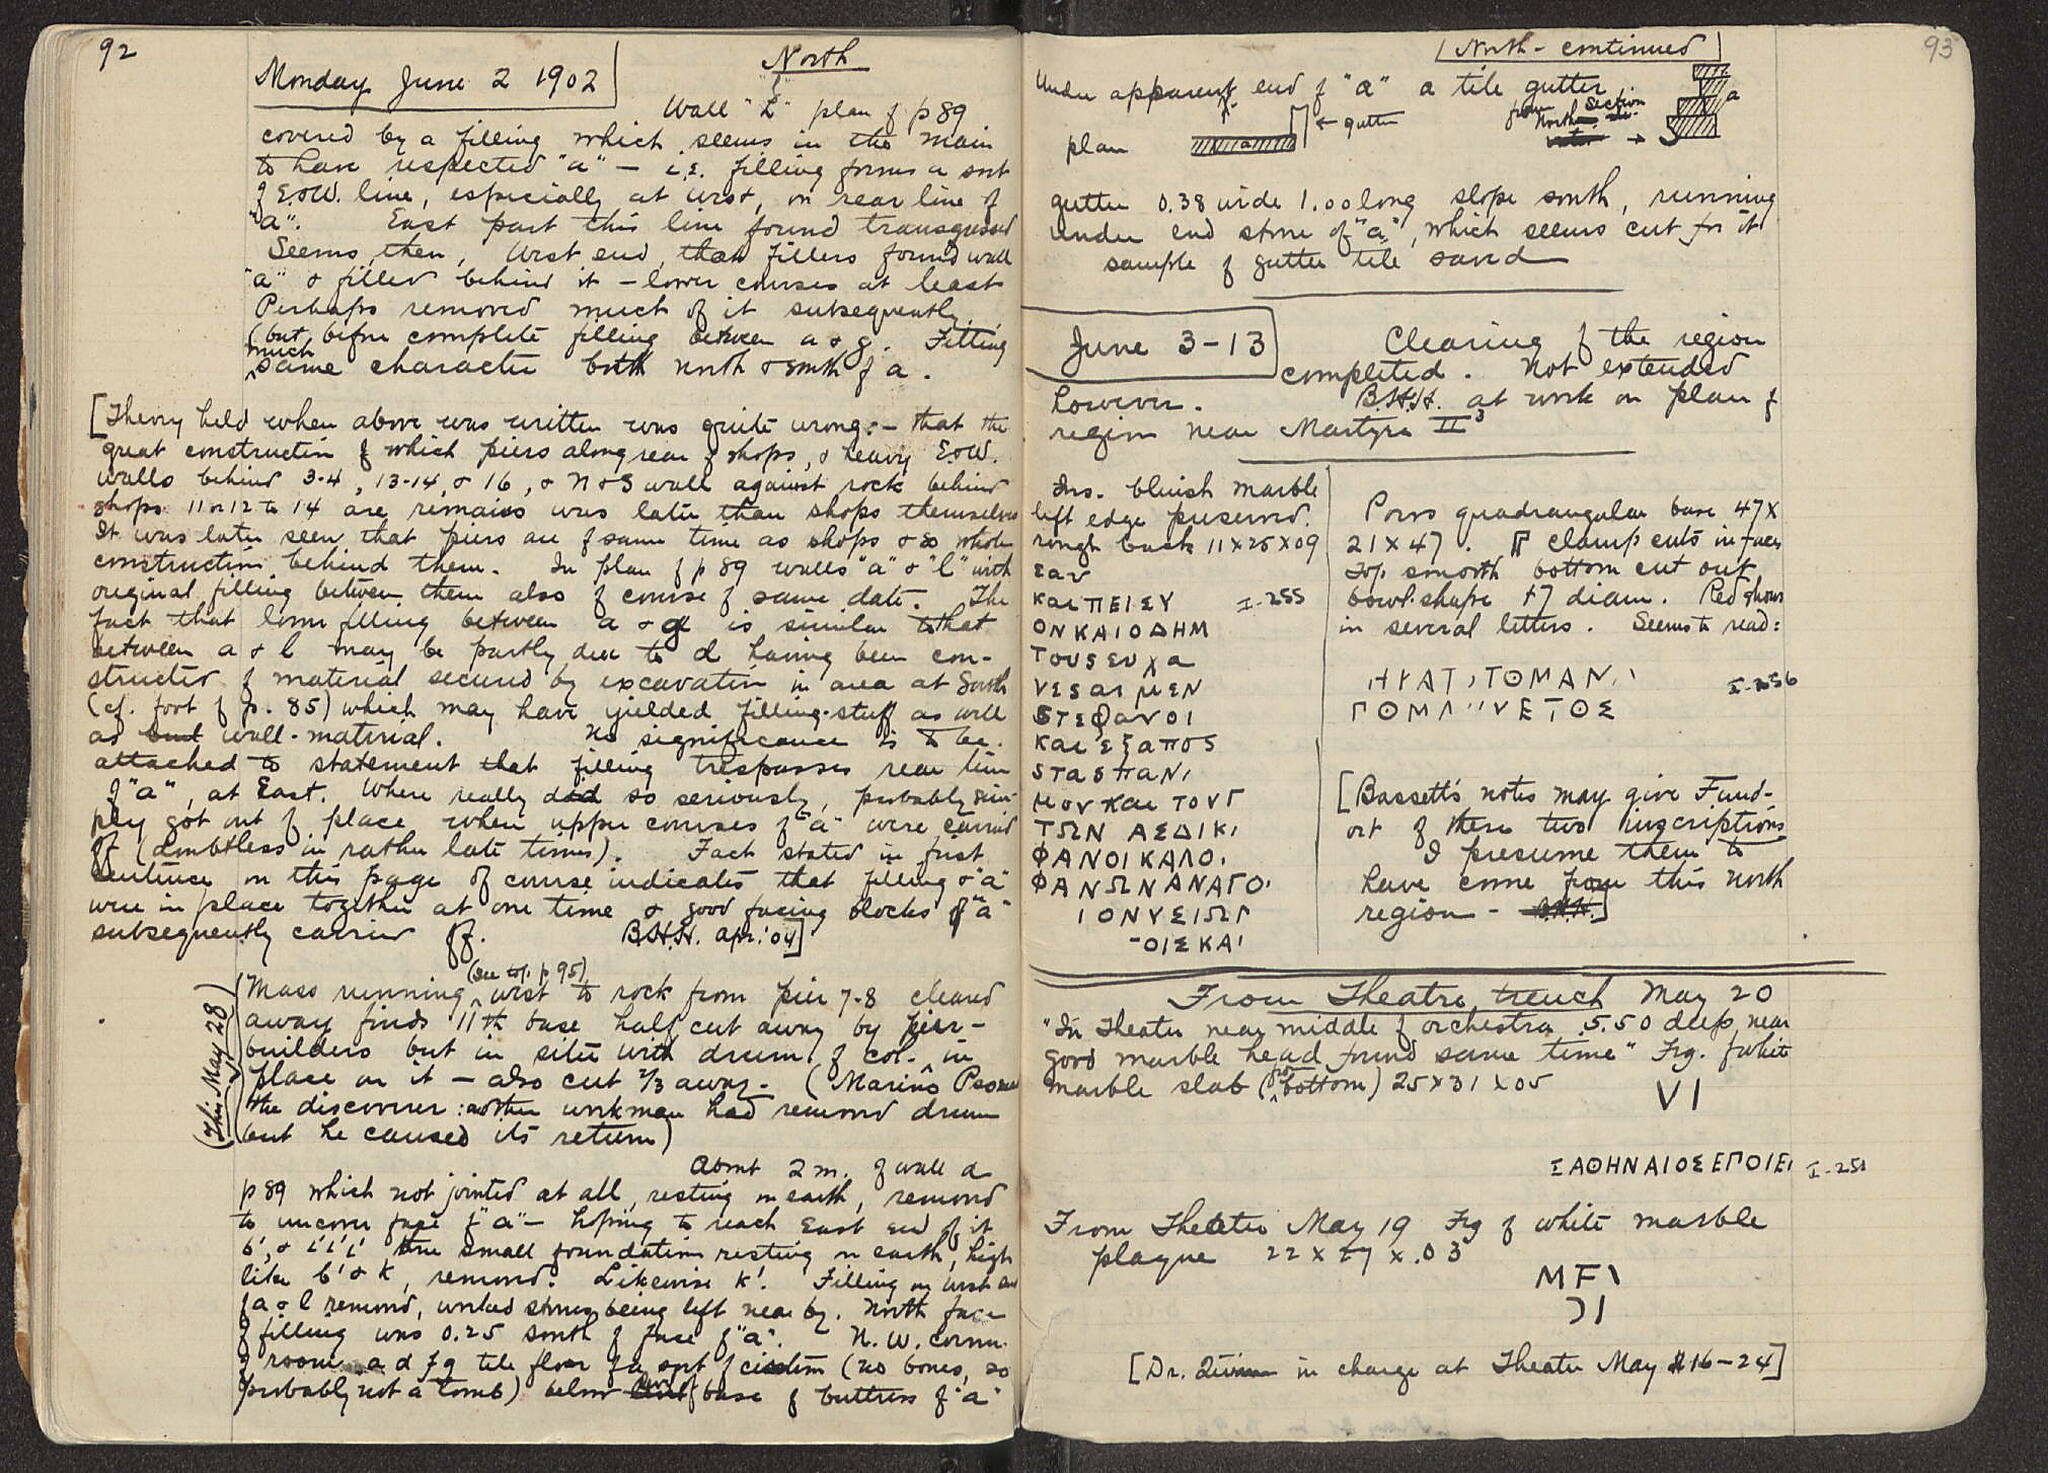 92
Monday June 2 1902
North
Wall "L" plan of p 89
covered by a filling which seems in the main
to have respected "a" — i.e. filling forms a sort
of E&W. line, especially at west, on rear line of
"a". East part this line found transgressed
Seems then, West end, that fillers found wall
"a" & filled behind it — lower courses at least
Perhaps removed much of it subsequently
(but before complete filling between a & g. Filling
much
same character both north & south of a.
[Theory held when above was written was quite wrong: — that the
great construction of which piers along rear of shops, & heavy E&W.
walls behind 3-4, 13-14, & 16, & N&S wall against rock behind
shops 11 or 12 to 14 are remains was later than shops themselves
It was later seen that piers are of same time as shops & so whole
construction behind them. In plan of p 89 walls "a" & "l" with
original filling between them also of course of same date. The
fact that lower filling between a & g is similar to that
between a & l may be partly due to d having been con-
structed of material secured by excavation in area at South
(cf. foot of p. 85) which may have yielded filling-stuff as well
as wall-material. No significance is to be
attached to statement that filling trespasses rear line
of "a", at East. Where really did so seriously, probably sim-
ply got out of place when upper courses of "a" were carried
off (doubtless in rather late times). Fact stated in first
sentence on this page of course indicates that filling & "a"
were in place together at one time & good facing blocks of "a"
subsequently carried off. B.H.H. Apr. '04]
(see top p 95)
(This May 28)
(Mass running west to rock from pier 7-8 cleared
away finds 11th base half cut away by pier-
builders but in situ with drum of col. in
place on it — also cut 2/3 away. (Marinos
the discoverer: another workman had removed drum
but he caused its return)
About 2 m. of wall d
p 89 which not jointed at all, resting on earth, removed
to uncover face of "a" — hoping to reach East end of it
b', & i' i' i' small foundation resting on earth, high
like b' & k, removed. Likewise k'. Filling on west end
of a & l removed, worked stones being left near by. North face
of filling was 0.25 south of face of "a". N.W. corner
of room a d f g tile floor of a sort of cistern (no bones, so
probably not a tomb) below base of buttress of "a"
93
North - continued
Under apparent end of "a" a tile gutter
plan
← gutter
from North
Section
a
gutter 0.38 wide 1.00 long slope south, running
under end stone of "a", which seems cut for it
sample of gutter tile saved
June 3-13
Clearing of the region
completed. Not extended
however. B.H.H. at work on plan of
region near Martyrs II³
Ins. bluish marble
left edge preserved.
rough back 11 x 25 x 09
ΕΑΝ
ΚΑΙ ΠΕΙΣΥ
I-255
ΟΝΚΑΙΟΔΗΜ
ΤΟΥΣΕΥΧΑ
ΝΕΣΑΙΜΕΝ
ΣΤΕΦΑΝΟΙ
ΚΑΙΕΞΑΠΟΣ
ΣΤΑΣΠΑΝΙ
ΜΟΝΚΑΙΤΟΥΓ
ΤΩΝ ΑΣΔΙΚΙ
ΦΑΝΟΙΚΑΛΟ.
ΦΑΝΩΝΑΝΑΓΟ.
ΙΟΝΥΣΙΩΓ
-ΟΙΣΚΑΙ
Poros quadrangular base 47 x
21 x 47. Π clamp cuts in faces
Top smooth bottom cut out
bowl-shape 17 diam. Red shows
in several letters. Seems to read:
ΗΥΑΤΙΤΟΜΑΝΙ
I-256
ΓΟΜΛΙΙΝΕΤΟΣ
[Bassett's notes may give Fund-
ort of these two inscriptions
I presume them to
have come from this north
region - B.H.H.]
From Theatre trench May 20
"In Theatre near middle of orchestra 5.50 deep, near
good marble head found same time" Frg. of white
marble slab (for bottom) 25 x 31 x 05
VI
ΣΑΘΗΝΑΙΟΣΕΠΟΙΕΙ
I-251
From Theatre May 19 Frg of white marble
plaque 22 x 27 x .03
ΜΕΙ
ϽΙ
[Dr. in charge at Theatre May 16-24]